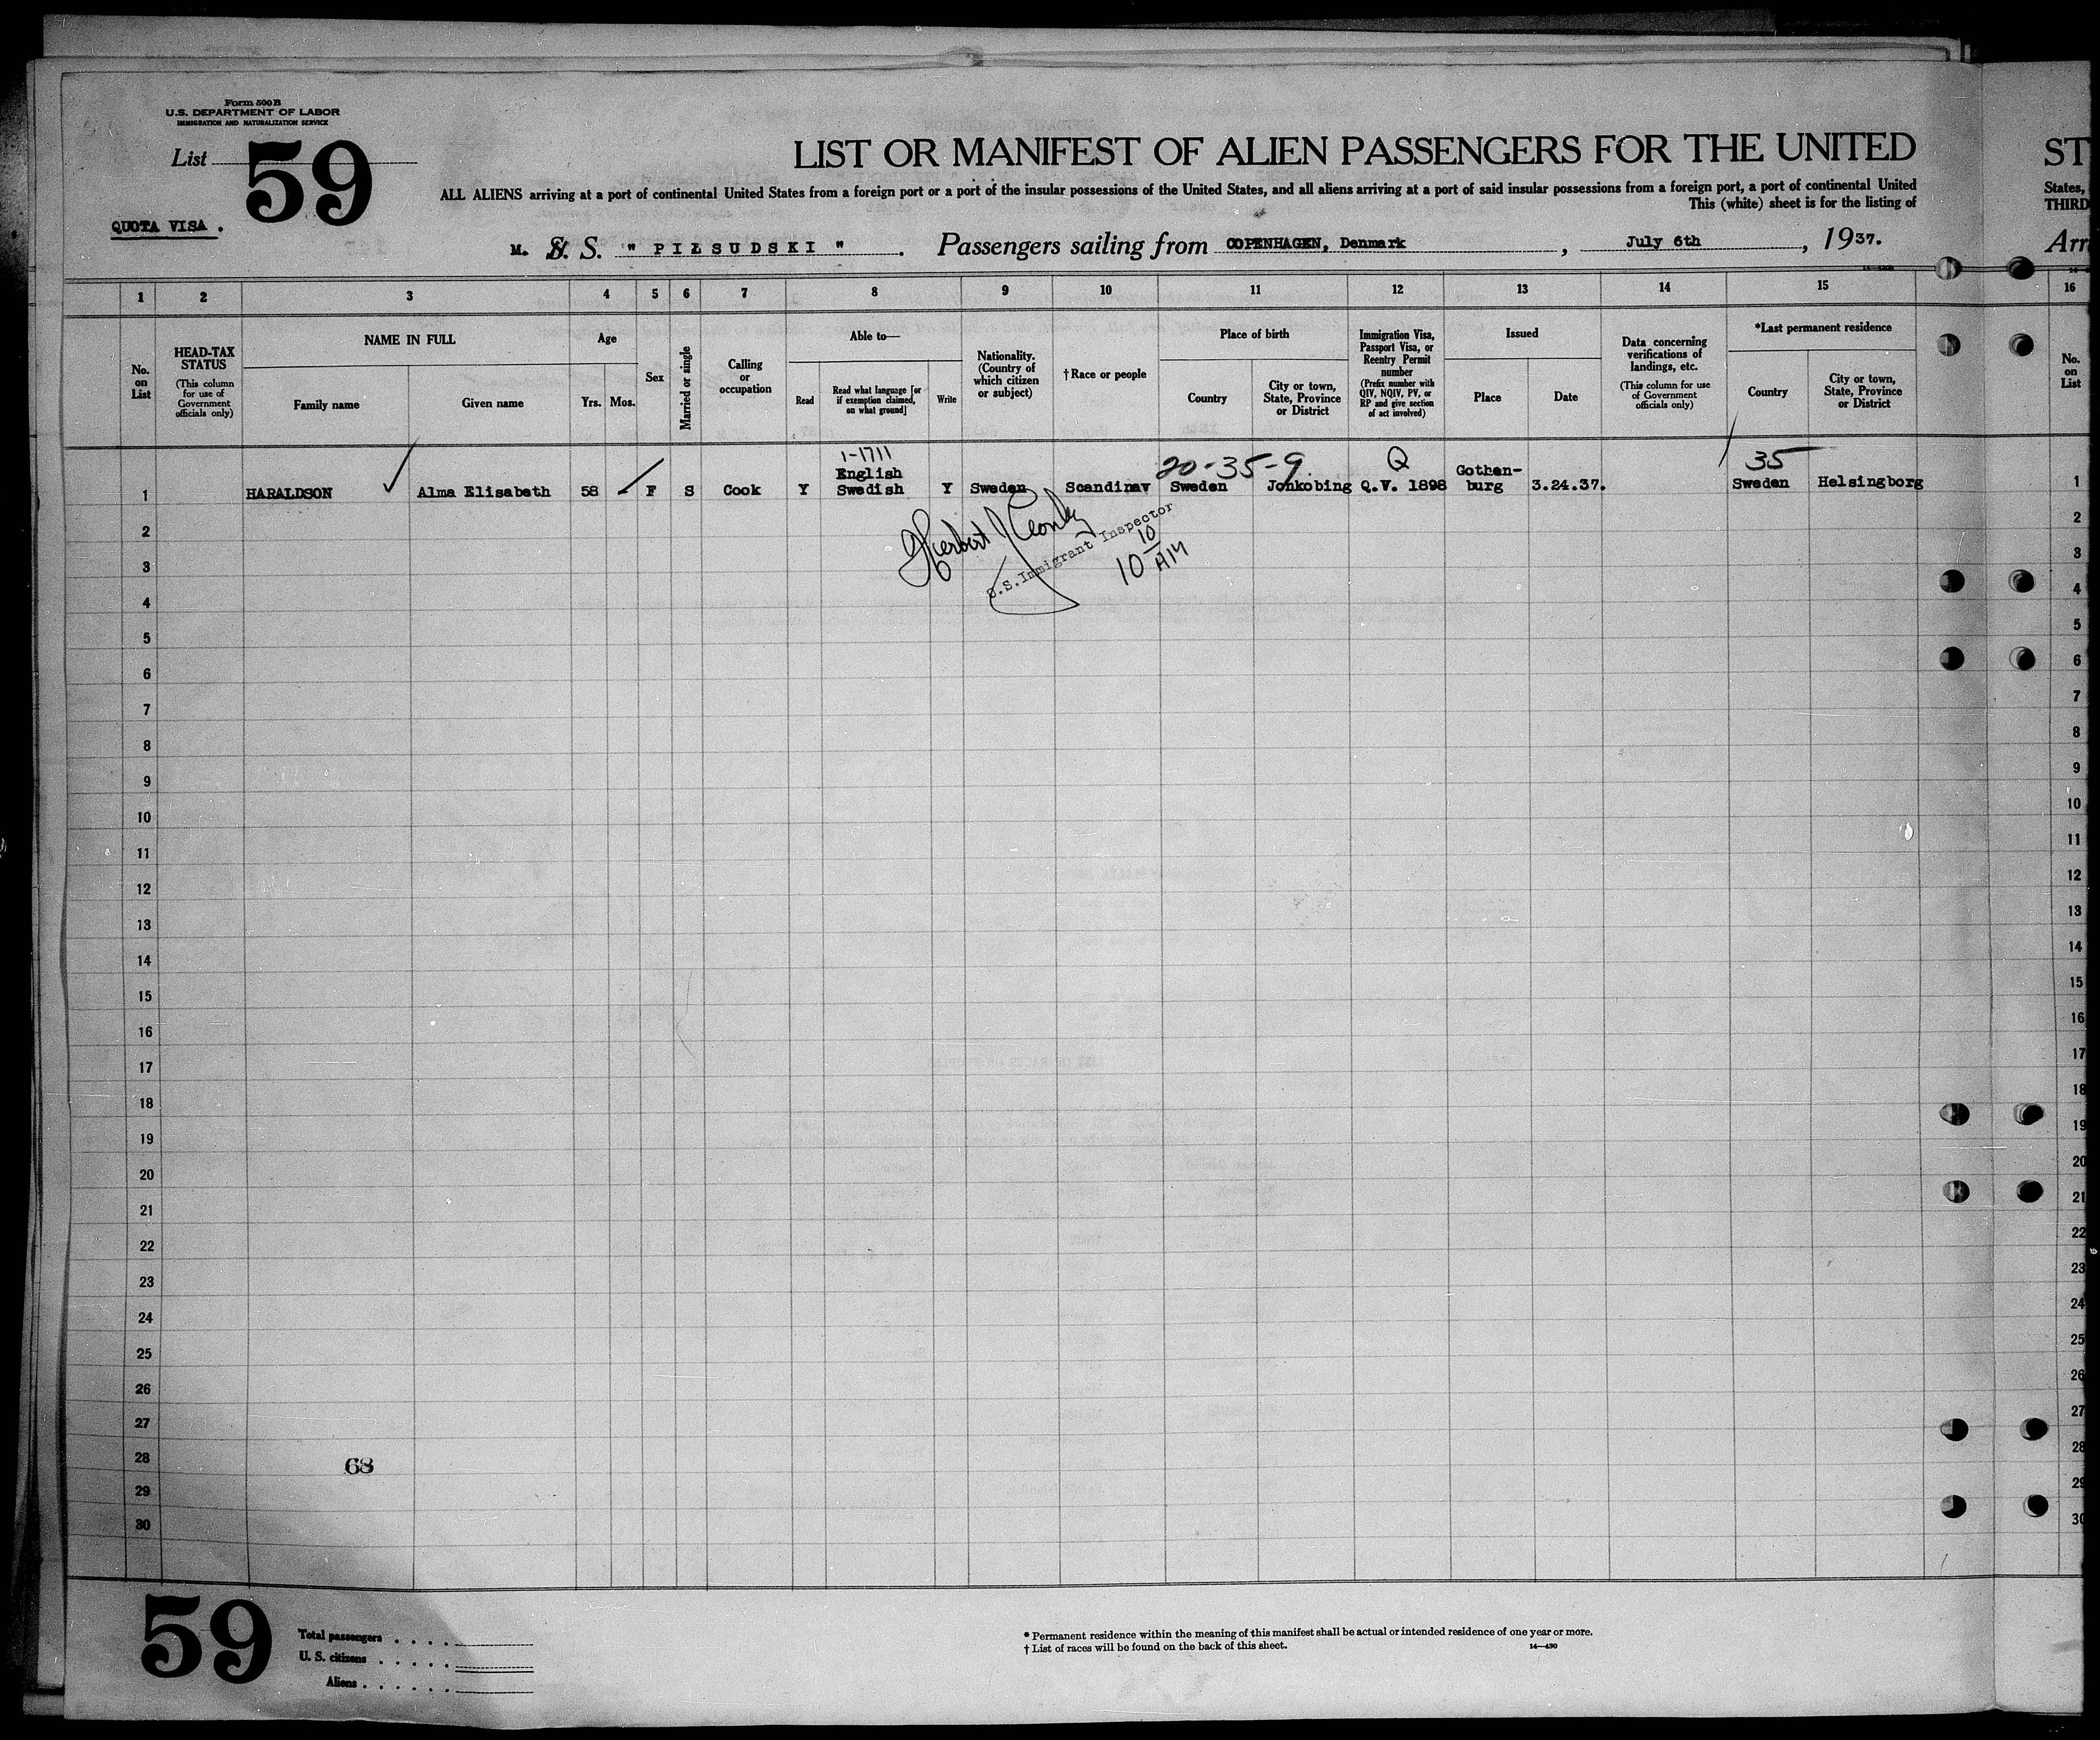 Form 500 B
U.S. DEPARTMENT OF LABOR
IMMIGRATION AND NATURALIZATION SERVICE
List 59
LIST OR MANIFEST OF ALIEN PASSENGERS FOR THE UNITED
ST
ALL ALIENS arriving at a port of continental United States from a foreign port or a port of the insular possessions of the United States, and all aliens arriving at a port of said insular possessions from a foreign port, a port of continental United
States,
This (white) sheet is for the listing of
THIRD
QUOTA VISA .
M. S. S. " PIŁSUDSKI " . Passengers sailing from COPENHAGEN, Denmark , July 6th , 1937.
Arr
1 2 3 4 5 6 7 8 9 10 11 12 13 14 15 16
No. on List
HEAD-TAX STATUS
(This column for use of Government officials only)
NAME IN FULL
Family name
Given name
Age
Yrs. Mos.
Sex
Married or single
Calling or occupation
Able to—
Read
Read what language [or if exemption claimed, on what ground]
Write
Nationality. (Country of which citizen or subject)
†Race or people
Place of birth
Country
City or town, State, Province or District
Immigration Visa, Passport Visa, or Reentry Permit number
(Prefix number with QIV, NQIV, PV, or RP and give section of act involved)
Issued
Place
Date
Data concerning verifications of landings, etc.
(This column for use of Government officials only)
*Last permanent residence
Country
City or town, State, Province or District
No. on List
1-1711
20-35-9.
Q
35
English
Gothen-
1 HARALDSON Alma Elisabeth 58 F S Cook Y Swedish Y Sweden Scandinav Sweden Jonkobing Q.V. 1898 burg 3.24.37. Sweden Helsingborg 1
Herbert J
U.S. Immigrant Inspector
10
10 AM
2 2
3 3
4 4
5 5
6 6
7 7
8 8
9 9
10 10
11 11
12 12
13 13
14 14
15 15
16 16
17 17
18 18
19 19
20 20
21 21
22 22
23 23
24 24
25 25
26 26
27 27
28 68 28
29 29
30 30
59
Total passengers
U. S. citizens
Aliens
* Permanent residence within the meaning of this manifest shall be actual or intended residence of one year or more.
† List of races will be found on the back of this sheet.
14—430